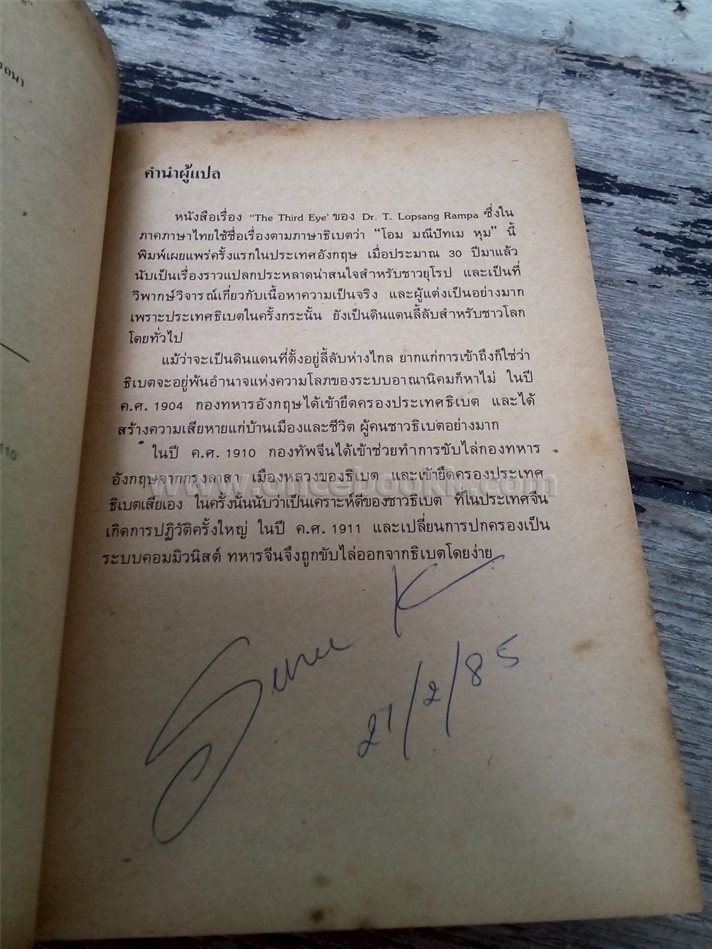 คำนำผู้แปล
หนังสือเรื่อง "The Third Eye' ของ Dr. T. Lopsang Rampa ซึ่งใน
ภาคภาษาไทยใช้ชื่อเรื่องตามภาษาธิเบตว่า "โอม มณีปัทเม หุม" นี้
พิมพ์เผยแพร่ครั้งแรกในประเทศอังกฤษ เมื่อประมาณ 30 ปีมาแล้ว
นับเป็นเรื่องราวแปลกประหลาดน่าสนใจสำหรับชาวยุโรป และเป็นที่
วิพากษ์วิจารณ์เกี่ยวกับเนื้อหาความเป็นจริง และผู้แต่งเป็นอย่างมาก
เพราะประเทศธิเบตในครั้งกระนั้น ยังเป็นดินแดนลี้ลับสำหรับชาวโลก
โดยทั่วไป
แม้ว่าจะเป็นดินแดนที่ตั้งอยู่ลี้ลับห่างไกล ยากแก่การเข้าถึงก็ใช่ว่า
ธิเบตจะอยู่พ้นอำนาจแห่งความโลภของระบบอาณานิคมก็หาไม่ ในปี
ค.ศ. 1904 กองทหารอังกฤษได้เข้ายึดครองประเทศธิเบต และได้
สร้างความเสียหายแก่บ้านเมืองและชีวิต ผู้คนชาวธิเบตอย่างมาก
ในปี ค.ศ. 1910 กองทัพจีนได้เข้าช่วยทำการขับไล่กองทหาร
อังกฤษจากกรุงลาสา เมืองหลวงของธิเบต และเข้ายึดครองประเทศ
ธิเบตเสียเอง ในครั้งนั้นนับว่าเป็นเคราะห์ดีของชาวธิเบต ที่ในประเทศจีน
เกิดการปฏิวัติครั้งใหญ่ ในปี ค.ศ. 1911 และเปลี่ยนการปกครองเป็น
ระบบคอมมิวนิสต์ ทหารจีนจึงถูกขับไล่ออกจากธิเบตโดยง่าย
21/2/85
110